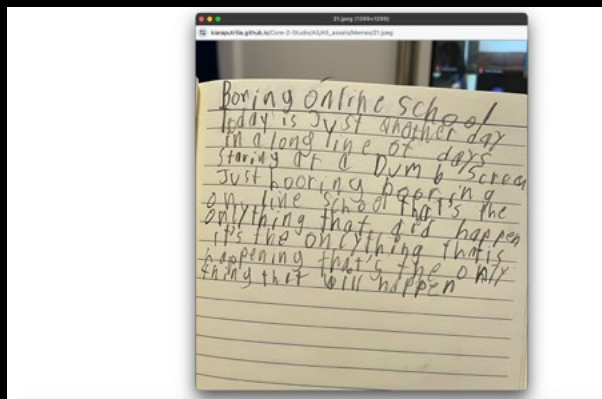 21.jpeg (1200×1200)
kiaraputrilia.github.io/Core-2-Studio/A5/A5_assets/Memes/21.jpeg
Boring online school
Today is Just another day
in a long line of days
Staring at a Dumb Screen
Just booring booring
on line school that's the
only thing that did happen
it's the only thing that is
happening that's the only
thing that will happen